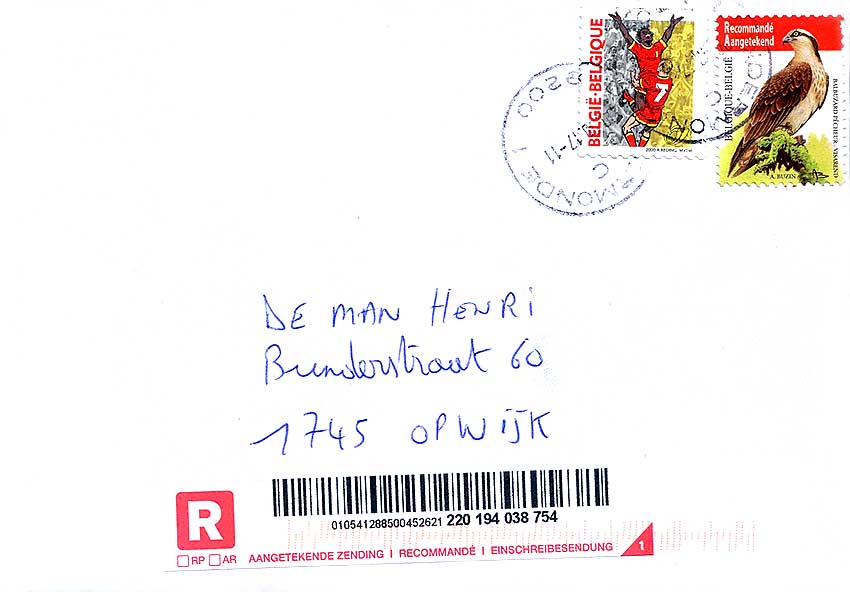 BELGIË-BELGIQUE
2000 P. REDING MVTM
Recommandé
Aangetekend
BELGIQUE-BELGIË
BALBUZARD PÊCHEUR-VISAREND
A. BUZIN
9200
17-11
C
DE MAN HENRI
Bunderstraat 60
1745 OPWIJK
R
010541288500452621 220 194 038 754
RP AR AANGETEKENDE ZENDING I RECOMMANDÉ I EINSCHREIBESENDUNG 1